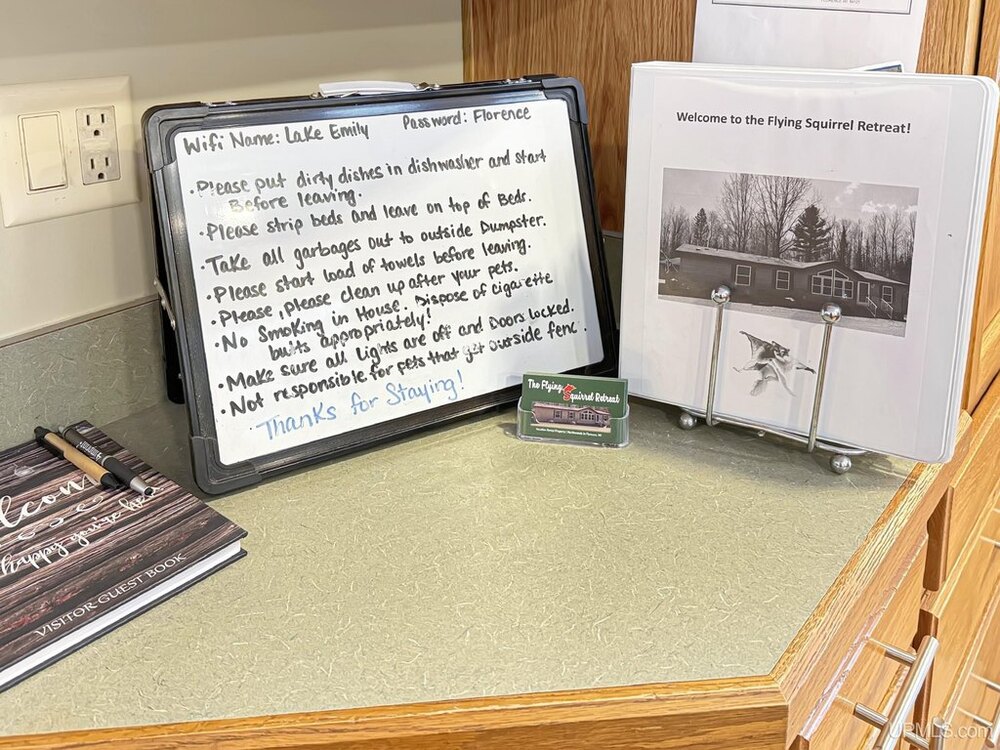 Wifi Name: Lake Emily Password: Florence
• Please put dirty dishes in dishwasher and start
Before leaving.
• Please strip beds and leave on top of Beds.
• Take all garbages out to outside Dumpster.
• Please start load of towels before leaving.
• Please, please clean up after your pets.
• No Smoking in House. Dispose of cigarette
butts appropriately!
• Make sure all Lights are off and Doors Locked.
• Not responsible for pets that get outside fenc
Thanks for Staying!
Welcome to the Flying Squirrel Retreat!
The Flying
Squirrel Retreat
lcom
happy you're here
VISITOR GUEST BOOK
UPMLS.com